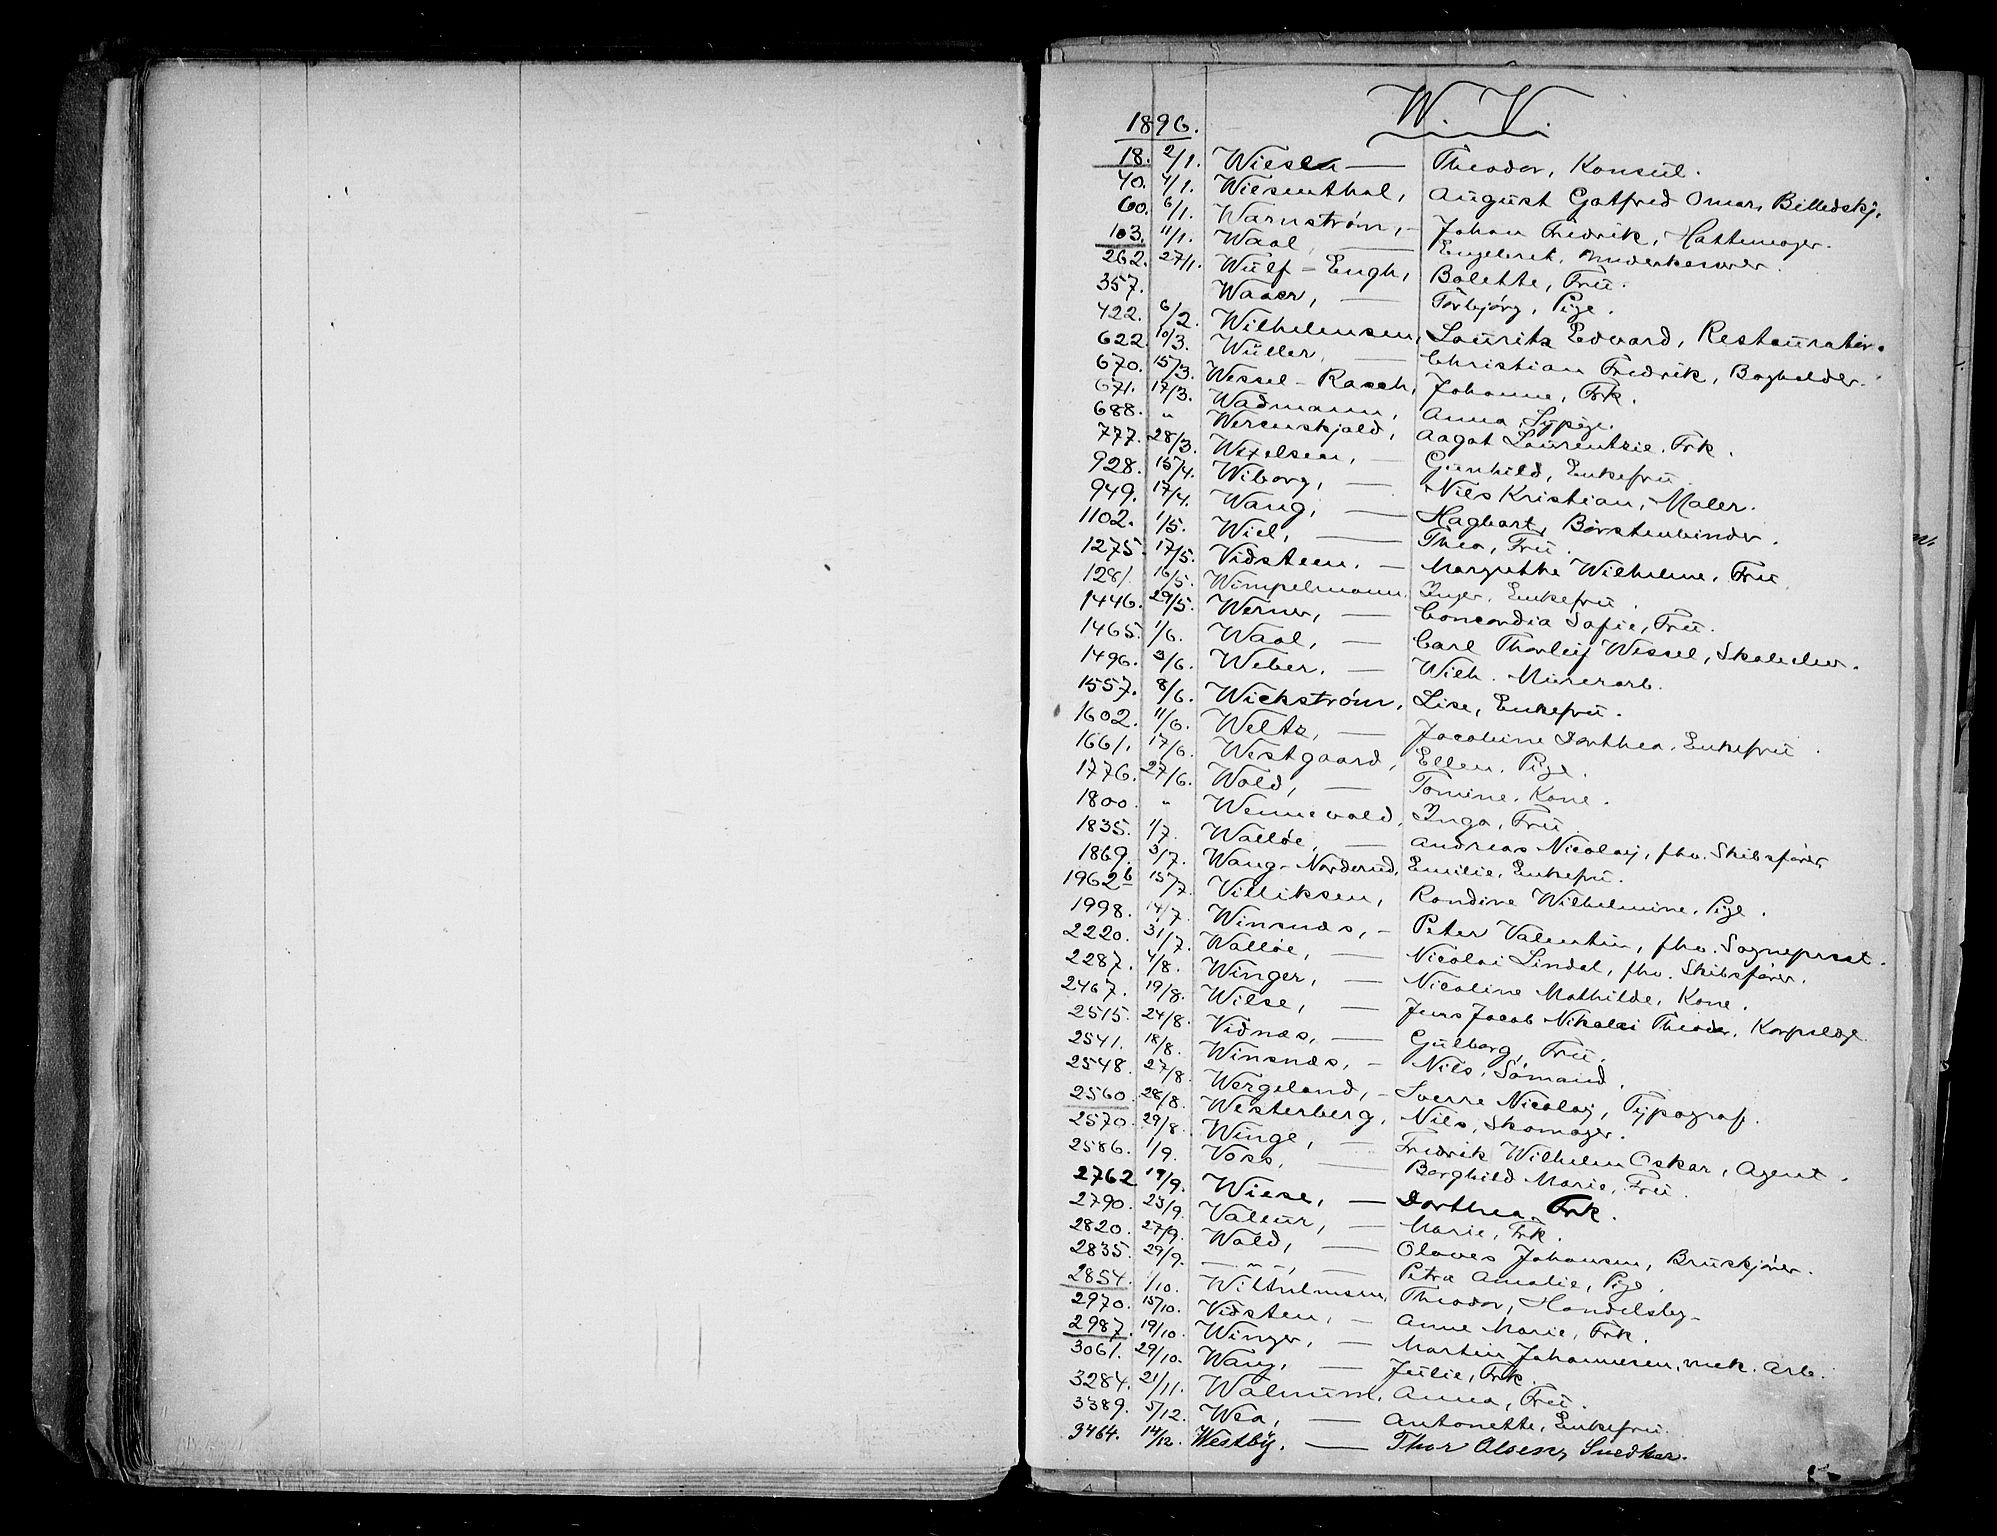 W. V.
1896.
18. 2/1. Wiesen — Theodor, Konsul.
40. 4/1. Wiesenthal, August Gotfred Omar, Billedskj.
60. 6/1. Warnstrøm, - Johan Fredrik, Hattemager.
103. 11/1. Waal, — Engebret, Underkorporer.
262. 27/1. Wulf-Engh, Bolette, Fru.
357. Waaer, — Torbjørg, Pige.
422. 6/2. Wilhelmsen, Lauritz Edvard, Restauratør.
622. 10/3. Wüller, — Christian Fredrik, Bogholder.
670. 15/3. Wessel-Rasch, Johanne, Frk.
671. 17/3. Wadmann, Anna Sypige.
688. " Werenskjold, Aagot Laurentzie, Frk.
777. 28/3. Wexelsen, — Gunhild, Enkefru
928. 15/4. Wiborg, — Nils Kristian, Maler.
949. 17/4. Wang, — Hagbart, Børstenbinder.
1102. 1/5. Wiel, — Thea, Fru.
1275. 17/5. Vidsteen, — Margrethe Wilhelmine, Fru
1281. 16/5. Wimpelmann, Inger, Enkefru.
1446. 29/5. Werner, — Concordia Sofie, Fru.
1465. 1/6. Waal, — Carl Thorleif Wessel, Skoleelev.
1496. 3/6. Weber, — Wilh. Murerarb.
1557. 8/6. Wickstrøm, Lise, Enkefru.
1602. 11/6. Weltz, — Jacobine Dorthea, Enkefru.
1661. 17/6. Westgaard, Ellen, Pige.
1776. 27/6. Wold, — Tomine, Kone.
1800. " Wennevold, Inga, Fru
1835. 1/7. Walløe, — Andreas Nicolaj, fhv. Skibsfører
1869. 3/7. Wang-Norderud, Emilie, Enkefru.
1962b 15/7. Villiksen, Randine Wilhelmine, Pige.
1998. 14/7. Winsnæs, - Peter Valentin, fhv. Sogneprest.
2220. 31/7. Walløe, — Nicolai Lindal, fhv. Skibsfører.
2287. 4/8. Winger, — Nicoline Mathilde, Kone.
2467. 19/8. Wilse, — Jens Jacob Nikolai Theodor,
2515. 24/8. Vidnæs, — Gulborg, Fru.
2541. 18/8. Winsnæs, - Nils, Sømand.
2548. 27/8. Wergeland, - Sverre Nicolaj, Typograf.
2560. 28/8. Westerberg, Nils, Skomager.
2570. 29/8. Winge, — Fredrik Wilhelm Oskar, Agent.
2586. 1/9. Voss, — Borghild Marie, Fru.
2762 19/9. Wiese, — Dorthea, Frk.
2790. 23/9. Valeur, — Marie, Frk.
2820. 27/9. Wold, — Olaves Johansen, Bruskjører.
2835. 29/9. — " — Petra Amalie, Pige.
2854. 1/10. Wilhelmsen, Theodor, Handelsbg.
2970. 15/10. Vidsten, — Anne Marie, Frk.
2987. 19/10. Winger, — Martin Johannesen, mek. Arb.
3061. 29/10. Wang, — Julie, Frk.
3284. 21/11. Walnum, Anna, Fru.
3389. 5/12. Wea, — Antonette, Enkefru.
3464. 14/12. Westby, — Thor Olsen, Snedker.